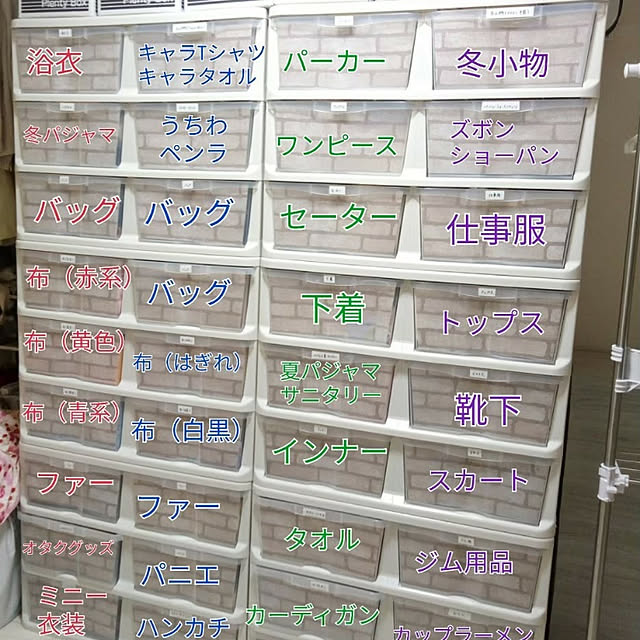 浴衣
キャラTシャツ
キャラタオル
パーカー
冬小物
冬パジャマ
うちわ
ペンラ
ワンピース
ズボン
ショーパン
バッグ
バッグ
セーター
仕事服
布（赤系）
バッグ
下着
トップス
布（黄色）
布（はぎれ）
夏パジャマ
サニタリー
靴下
布（青系）
布（白黒）
インナー
スカート
ファー
ファー
タオル
ジム用品
オタクグッズ
パニエ
カーディガン
カップラーメン
ミニー
衣装
ハンカチ